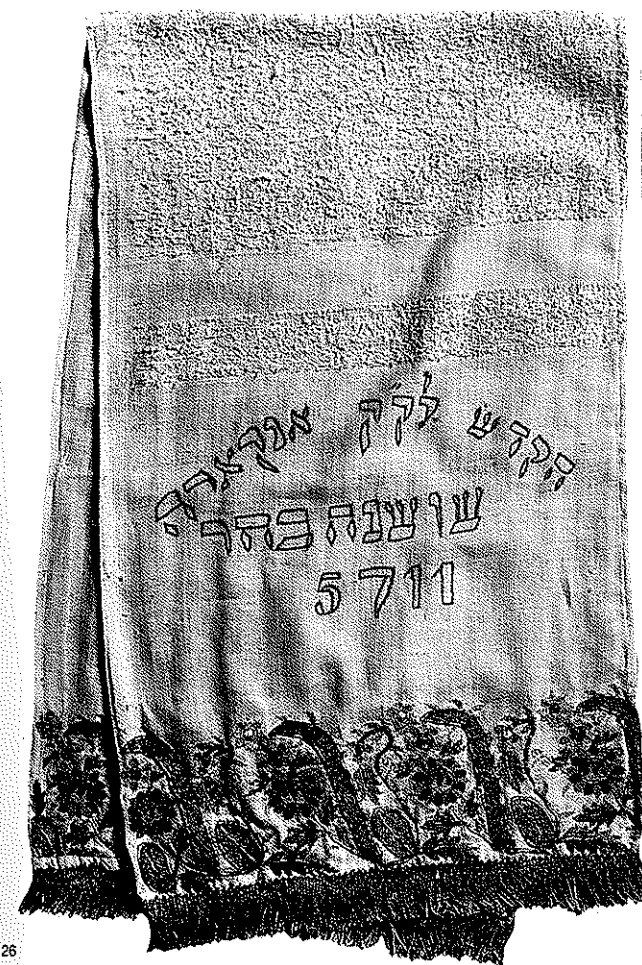 הקדש לק״ק אנקארה
שושנה בהר
5711
26